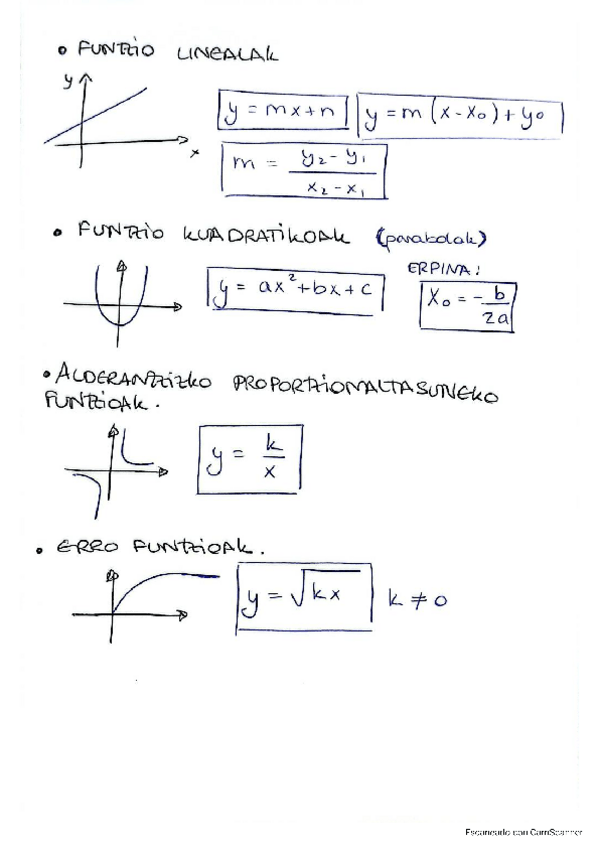 • FUNTZIO LINEALAK
y
y = mx+n   y = m (x-x₀)+y₀
x
m = (y₂-y₁)/(x₂-x₁)
• FUNTZIO KUADRATIKOAK (parabolak)
ERPINA:
y = ax²+bx+c   x₀ = -b/2a
• ALDERANTZIZKO PROPORTZIONALTASUNEKO
FUNTZIOAK.
y = k/x
• ERRO FUNTZIOAK.
y = √kx   k ≠ 0
Escaneado con CamScanner